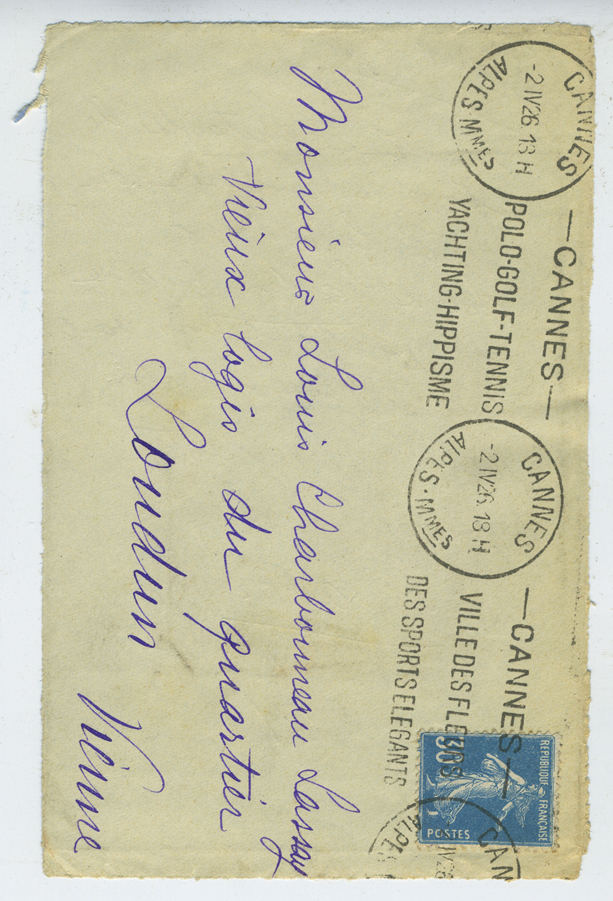 CANNES
-2 IV 26 18 H
ALPES MMES
— CANNES —
POLO-GOLF-TENNIS
YACHTING-HIPPISME
CANNES
-2 IV 26 18 H
ALPES-MMES
— CANNES —
VILLE DES FLEURS
DES SPORTS ELEGANTS
REPUBLIQUE FRANÇAISE
30c
POSTES
CAN
IV 26
ALPES
Monsieur Louis Charbonneau Lassay
Vieux logis du quartier
Loudun
Vienne